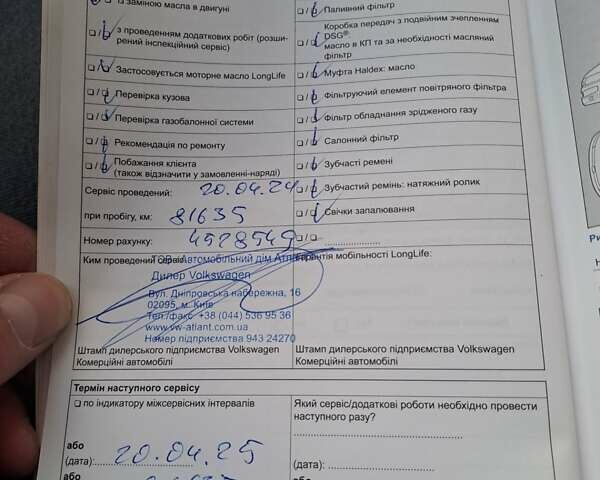 із заміною масла в двигуні
з проведенням додаткових робіт (розши-
рений інспекційний сервіс)
Застосовується моторне масло LongLife
Перевірка кузова
Перевірка газобалонної системи
Рекомендація по ремонту
Побажання клієнта
(також відзначити у замовленні-наряді)
Сервіс проведений: 20.04.24
при пробігу, км: 81635
Номер рахунку: 4528549
Ким проведений сервіс:
ТОВ «Автомобільний дім Атлант
Дилер Volkswagen
Вул. Дніпровська набережна, 16
02095, м. Київ
Тел./факс +38 (044) 536 95 36
www.vw-atlant.com.ua
Номер підприємства 943 24270
Штамп дилерського підприємства Volkswagen
Комерційні автомобілі
Паливний фільтр
Коробка передач з подвійним зчепленням
DSG®:
масло в КП та за необхідності масляний
фільтр
Муфта Haldex: масло
Фільтруючий елемент повітряного фільтра
Фільтр обладнання зрідженого газу
Салонний фільтр
Зубчасті ремені
Зубчастий ремінь: натяжний ролик
Свічки запалювання
Гарантія мобільності LongLife:
Штамп дилерського підприємства Volkswagen
Комерційні автомобілі
Термін наступного сервісу
по індикатору міжсервісних інтервалів
або
(дата): 20.04.25
або
Який сервіс/додаткові роботи необхідно провести
наступного разу?
(дата):
або
Ри